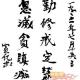 勤修戒定慧
息滅貪瞋癡
宣化